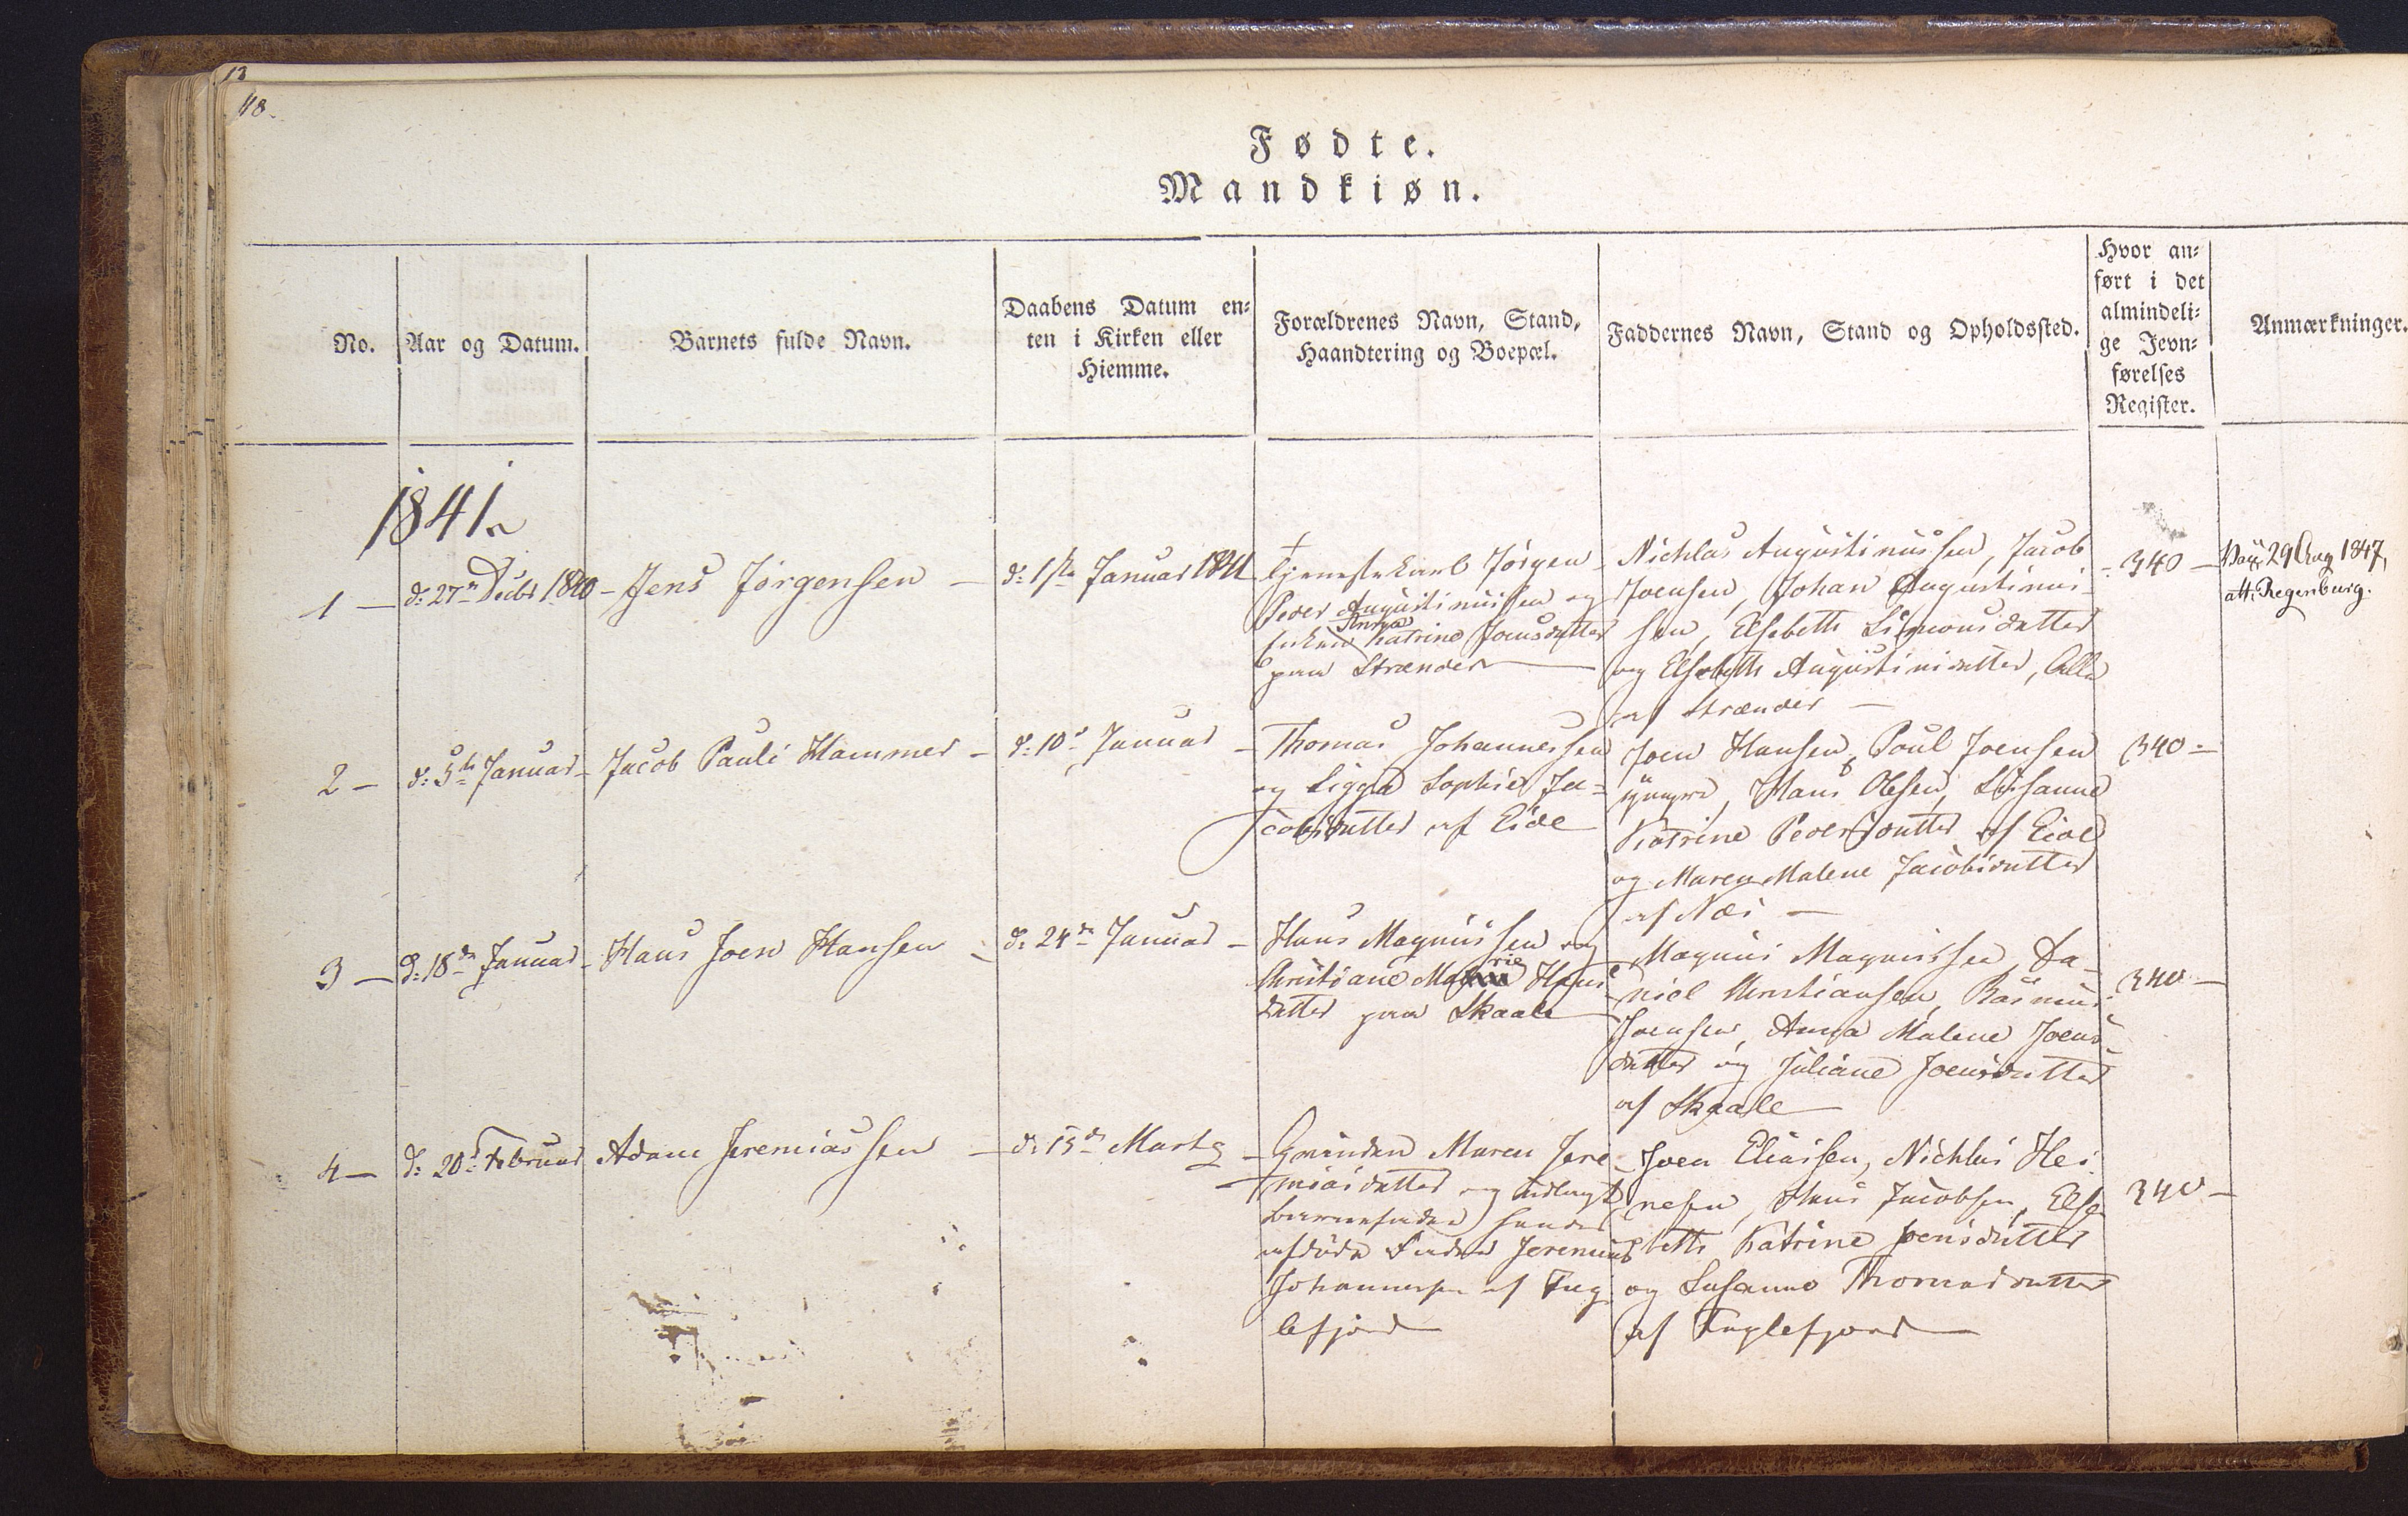 13
48.
Fødte.
Mandkiøn.
No.
Aar og Datum.
Barnets fulde Navn.
Daabens Datum en-
ten i Kirken eller
Hiemme.
Forældrenes Navn, Stand,
Haandtering og Boepæl.
Faddernes Navn, Stand og Opholdssted.
Hvor an-
ført i det
almindeli-
ge Jevn-
førelses
Register.
Anmærkninger.
1841.
1 — d: 27de Decbr 1840 - Jens Jørgensen — d: 1ste Januar 1841
Tjenestekarl Jørgen
Peder Augustinussen og
Anna
Katrine Joensdatter
paa Strænder —
Nichlas Augustinussen, Jacob
Joensen, Johan Augustinus-
sen, Elsebeth Simonsdatter
og Elsebeth Augustinidatter, Alle
af Strænder —
- 340 —
29 Aug 1847,
att: Regenburg.
2 — d: 5te Januar - Jacob Pauli Hammer — d: 10de Januar —
Thomas Johannessen
og Sigga Sophie Ja-
cobsdatter af Eide
Joen Hansen, Poul Joensen
yngre, Hans Olsen, Susanne
Katrine Pedersdatter af Eide
og Maren Malene Jacobsdatter
af Næs —
340 —
3 — d: 18de Januar - Hans Joen Hansen — d: 24de Januar —
Hans Magnussen og
rie
Christiane Ma Hans
datter paa Skaale
Magnus Magnussen, Da-
niel Christiansen, Rasmus
Joensen, Anna Malene Joens
datter og Juliane Joensdatter
af Skaale —
340 —
4 — d: 20de Februar Adam Jeremiassen — d: 15de Marts —
Qvinden Maren Jere
miasdatter og udlagt
barnefader hendes
afdøde Fader Jeremias
Johannesen af Fug
lefjord —
Joen Eliassen, Nichlas Hei
nesen, Hans Jacobsen, Else
beth Katrine Joensdatter
og Susanne Thomasdatter
af Fuglefjord —
340 —